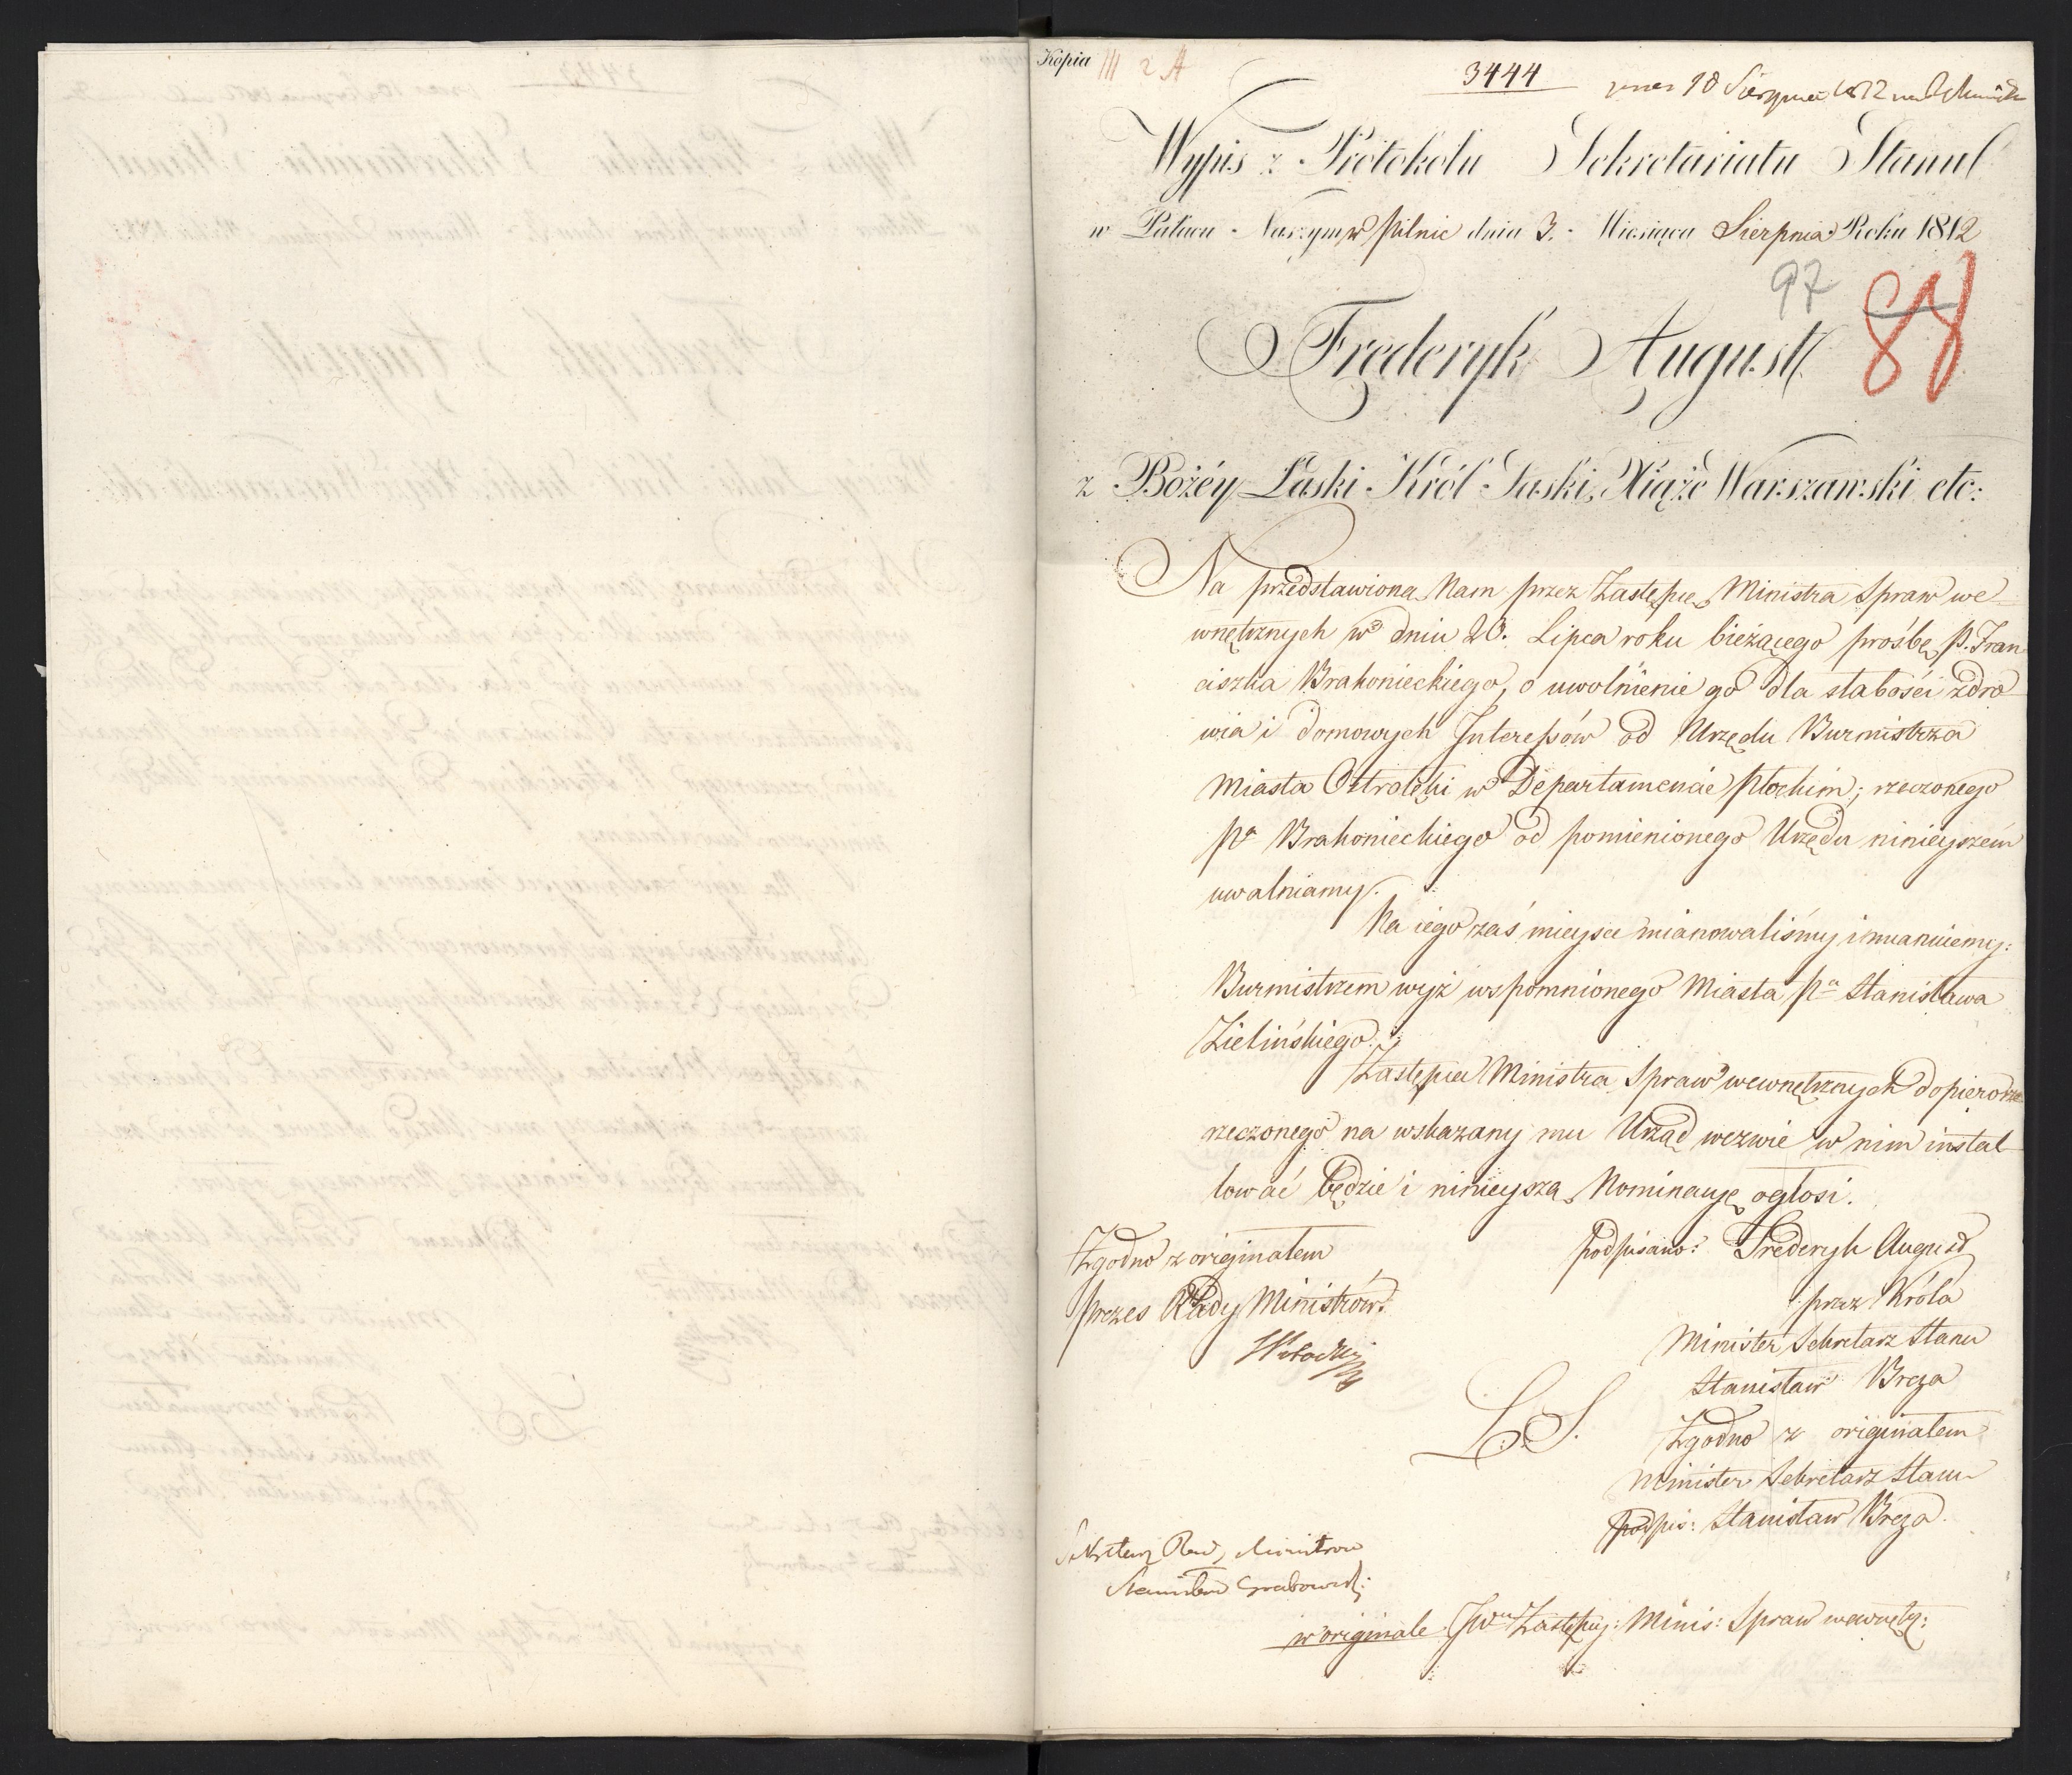 Kopia III 2 A
3444
10 Sierpnia 1812
Wypis z Protokołu Sekretariatu Stanu
w Pałacu Naszym w Pilnic dnia 3. Miesiąca Sierpnia Roku 1812
97 88
Frederyk August
z Bożéy Łaski Król Saski, Xiąże Warszawski etc:
Na przedstawioną Nam przez Zastępcę Ministra Spraw we-
wnętrznych w dniu 20. Lipca roku bieżącego prośbę P. Fran-
ciszka Brakonieckiego, o uwolnienie go dla słabości zdro-
wia i domowych Interessów od Urzędu Burmistrza
Miasta Ostrołęki w Departamencie Płockim; rzeczonego
Pa Brakonieckiego od pomienionego Urzędu ninieyszem
uwalniamy.
Na iego zaś mieysce mianowaliśmy i mianuiemy:
Burmistrzem wyż wspomnionego Miasta Pa Stanisława
Zielińskiego.
Zastępca Ministra Spraw wewnętrznych dopiero rze-
rzeczonego na wskazany mu Urząd wezwie w nim instal-
lować będzie i ninieyszą Nominacyę ogłosi.
Zgodno z originałem
Prezes Rady Ministrów.
podpisano: Frederyk August
przez Króla
Minister Sekretarz Stanu
Stanisław Breza
L. S.
Zgodno z originałem
Minister Sekretarz Stanu
podpis: Stanisław Breza.
Sekretarz Rady Ministrów
Stanisław Grabowski
w originale JWu Zastępcy: Minis: Spraw wewnętrz: